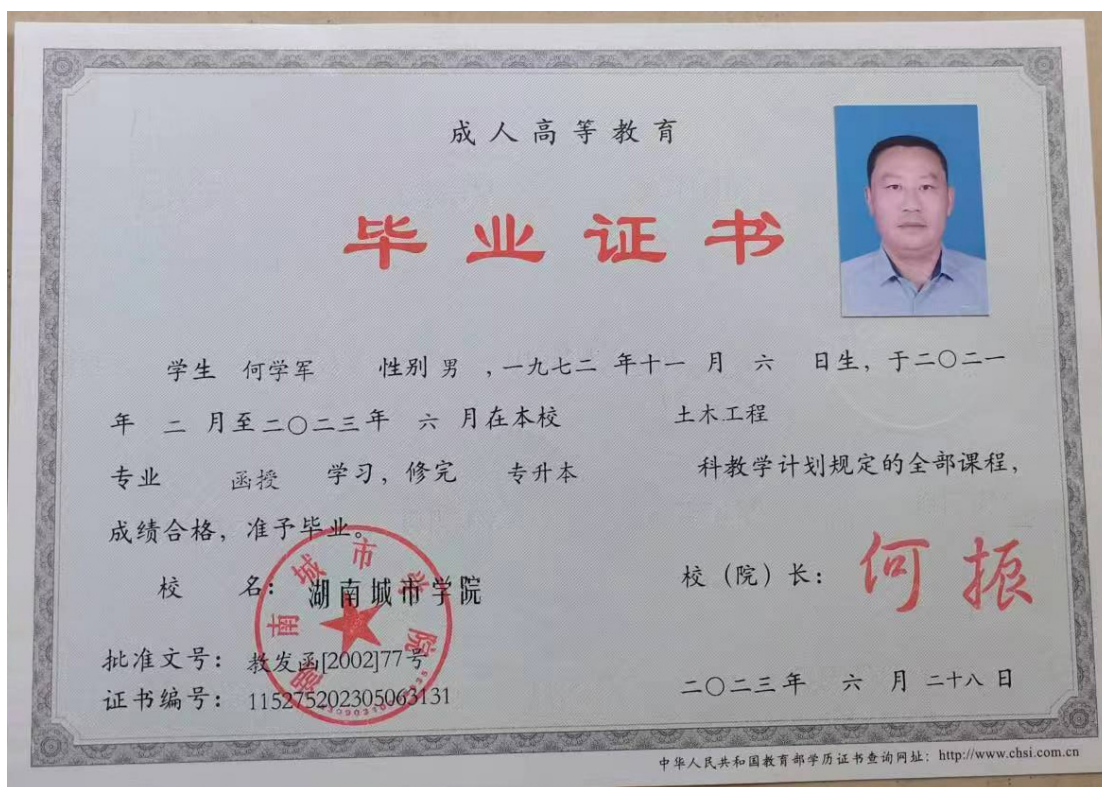 成人高等教育
毕业证书
学生 何学军 性别 男 ，一九七二 年十一 月 六 日生，于二〇二一
年 二 月至二〇二三年 六 月在本校 土木工程
专业 函授 学习，修完 专升本 科教学计划规定的全部课程，
成绩合格，准予毕业。
校 名： 湖南城市学院
湖南城市学院
校（院）长： 何振
批准文号： 教发函[2002]77号
证书编号： 115275202305063131
二〇二三年 六 月 二十八 日
中华人民共和国教育部学历证书查询网址：http://www.chsi.com.cn